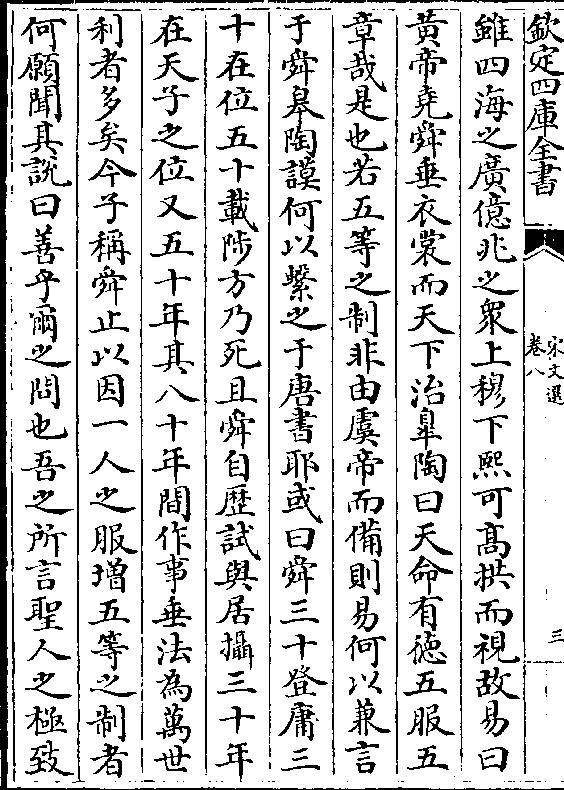 欽定四庫全書
宋文選
卷八
三
雖四海之廣億兆之衆上穆下熙可髙拱而視故易曰
黃帝堯舜垂衣裳而天下治臯陶曰天命有徳五服五
章哉是也若五等之制非由虞帝而備則易何以兼言
于舜臯陶謨何以繫之于唐書耶或曰舜三十登庸三
十在位五十載陟方乃死且舜自歴試與居攝三十年
在天子之位又五十年其八十年間作事垂法為萬世
利者多矣今子稱舜止以因一人之服増五等之制者
何願聞其說曰善乎爾之問也吾之所言聖人之極致